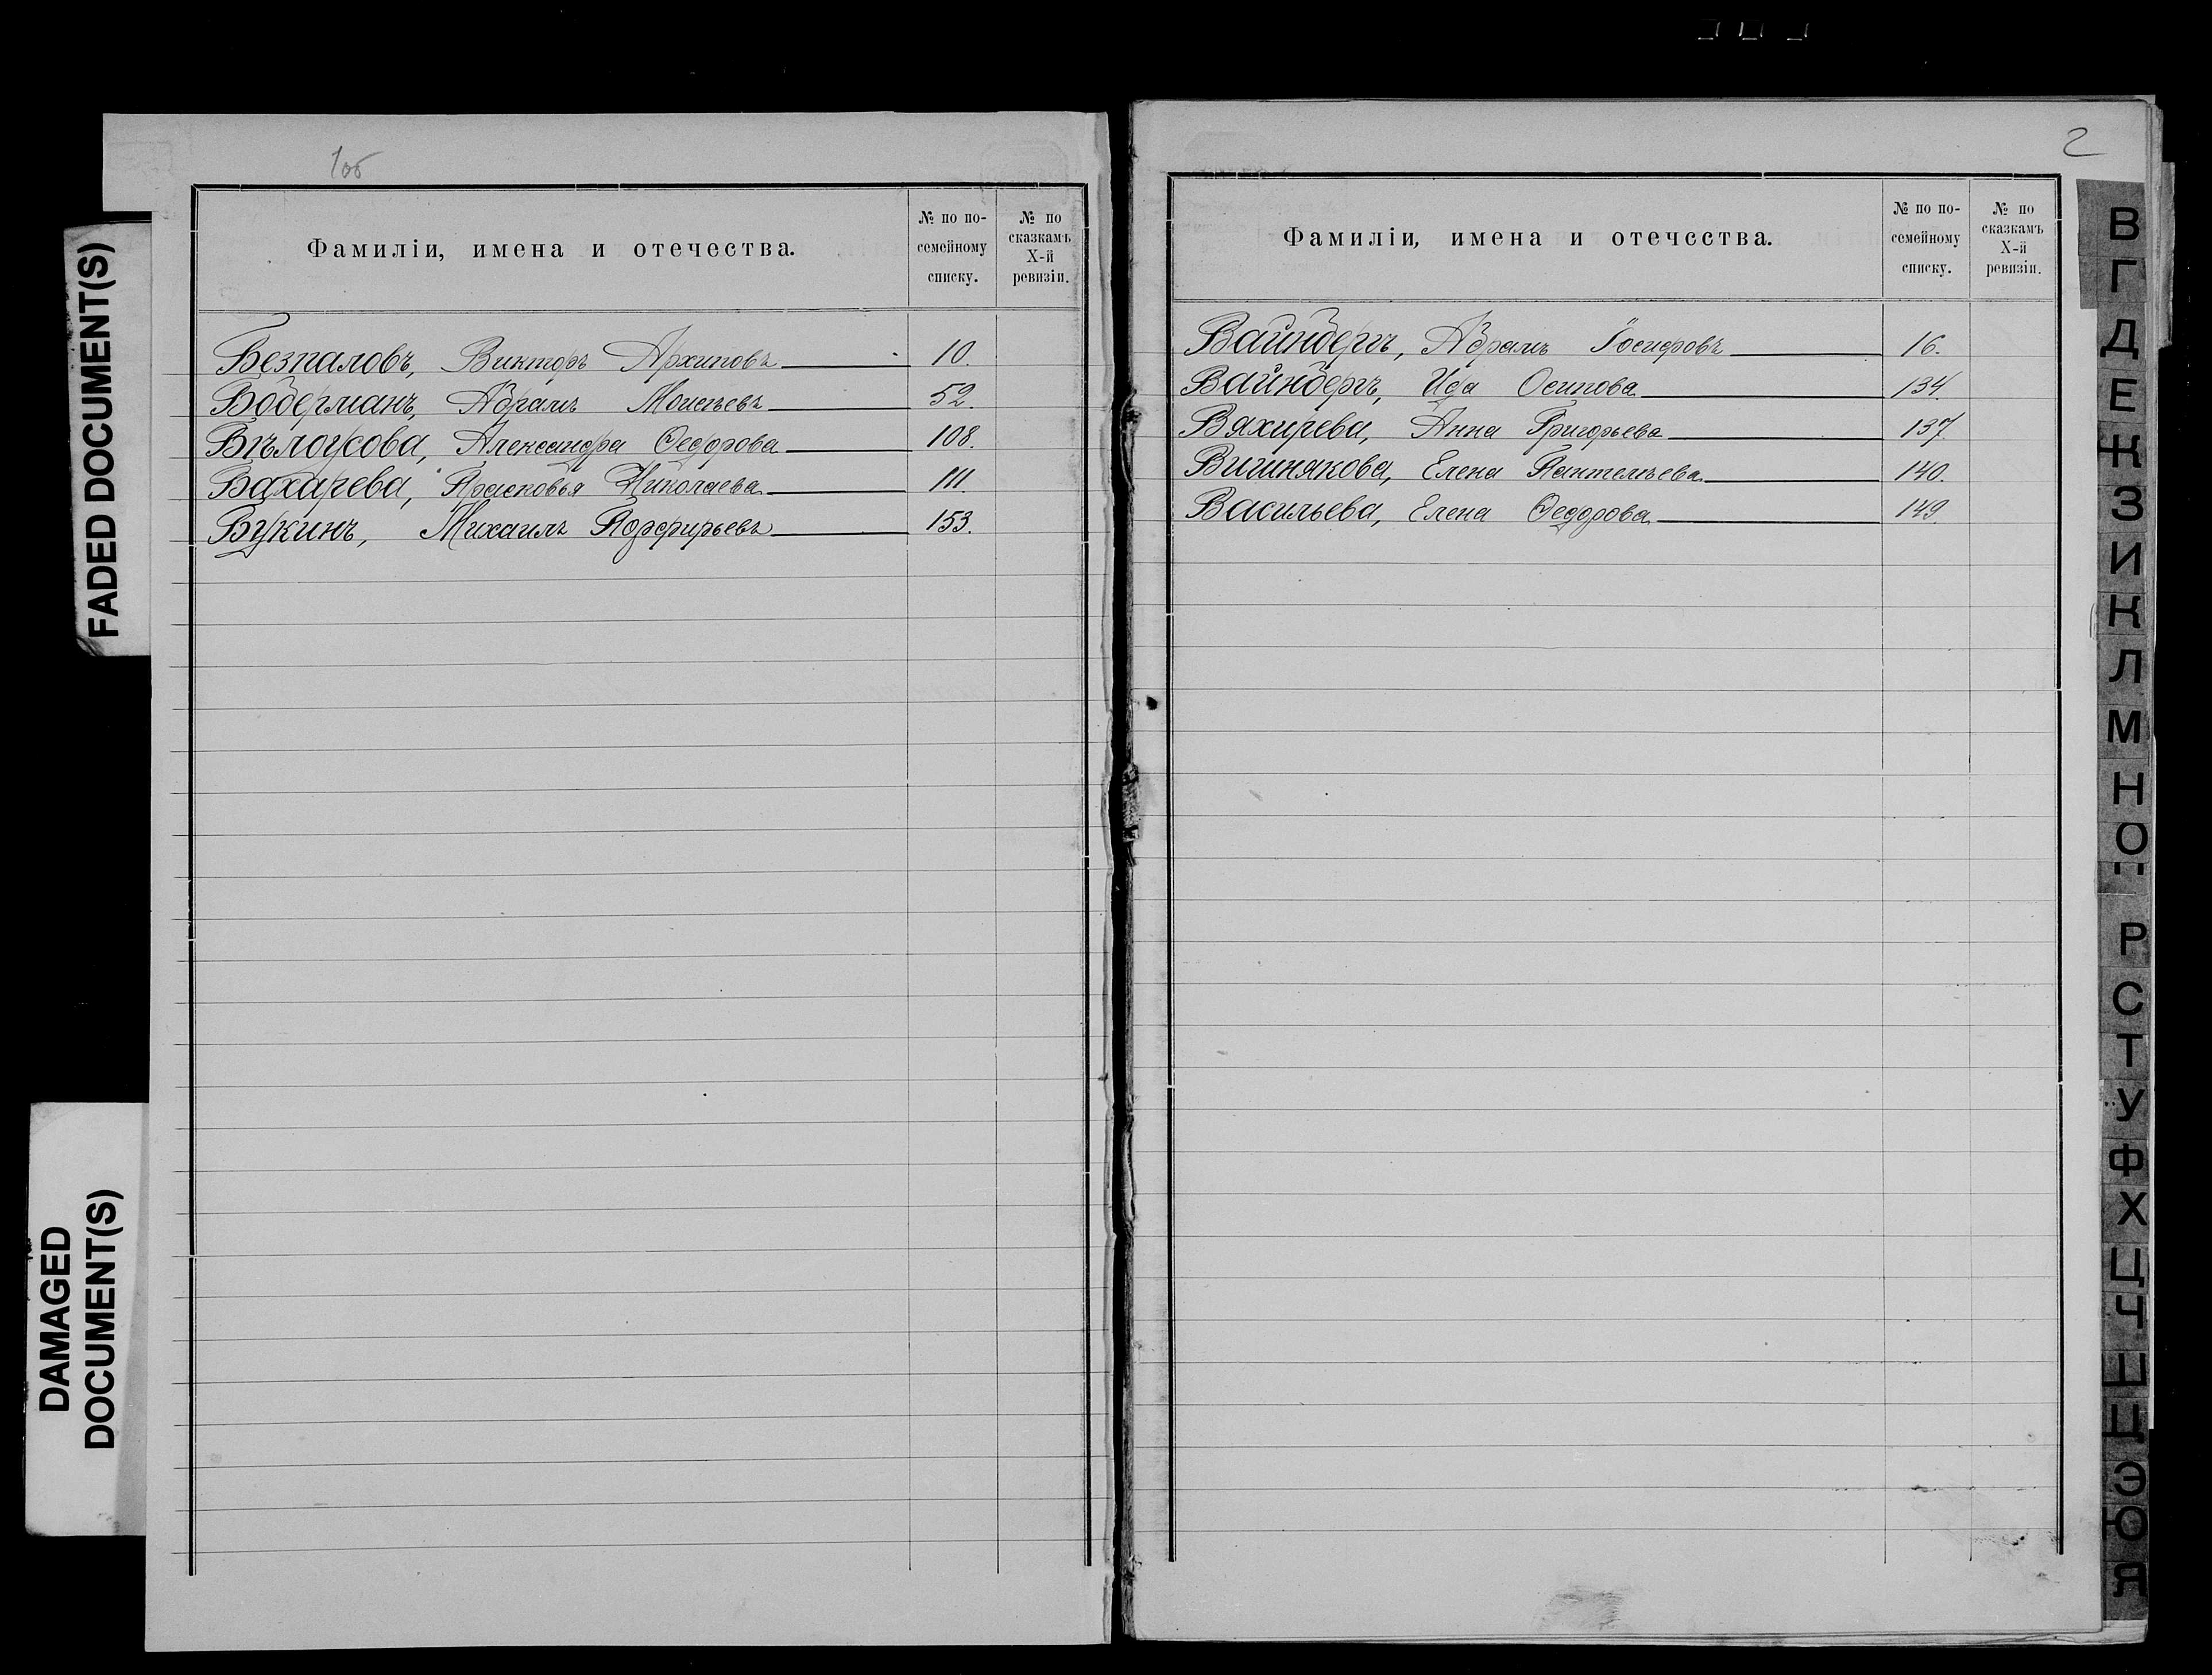 1об
Фамиліи, имена и отечества.
№ по по-
семейному
списку.
№ по
сказкамъ
X-й
ревизіи.
Безпаловъ, Викторъ Архиповъ 10.
Бодерманъ, Абрамъ Моисѣевъ 52.
Бѣлоусова, Александра Ѳедорова 108.
Бахарева, Прасковья Николаева 111.
Букинъ, Михаилъ Порфирьевъ 153.
FADED DOCUMENT(S)
DAMAGED
DOCUMENT(S)
2
Фамиліи, имена и отечества.
№ по по-
семейному
списку.
№ по
сказкамъ
X-й
ревизіи.
Вайнбергъ, Абрамъ Іосифовъ 16.
Вайнбергъ, Ида Осипова 134.
Вяхирева, Анна Григорьева 137.
Вишнякова, Елена Пантелѣева 140.
Васильева, Елена Ѳедорова 149.
В
Г
Д
Е
Ж
З
И
К
Л
М
Н
О
Р
С
Т
У
Ф
Х
Ц
Ч
Ш
Щ
Э
Ю
Я